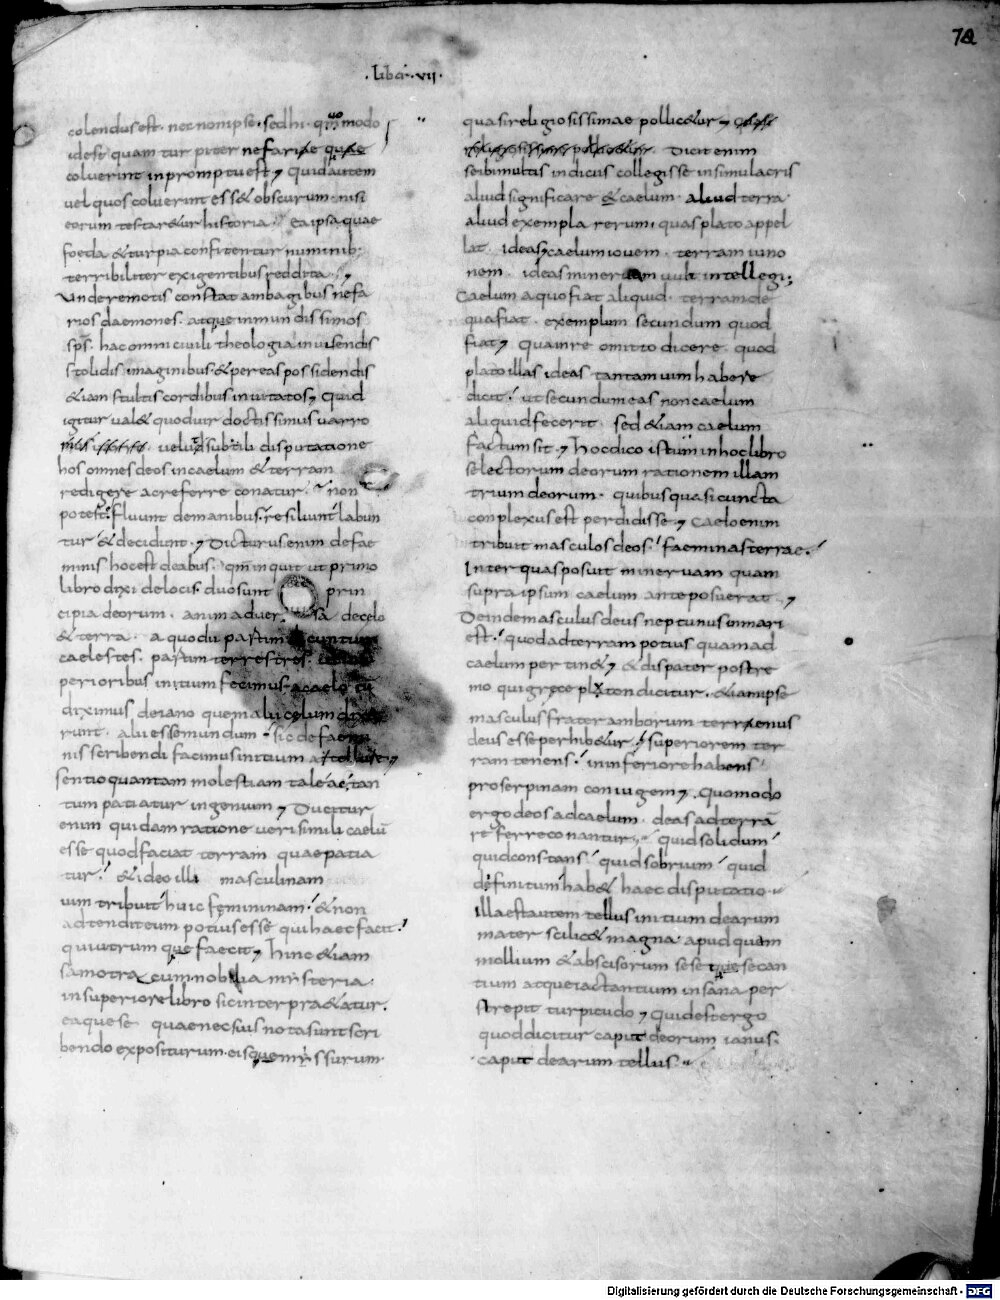 72
· liber · vii ·
colendus est · nec non ipse · sed hi · quomodo
id est quam turpiter nefariae quae
coluerint in promptu est ; quid autem
vel quos coluerint ess& obscurum · nisi
eorum testar&ur historia · ea ipsa quae
foeda & turpia confitentur numinib;
terribiliter exigentibus reddita ;
Unde remotis constat ambagibus nefa
rios daemones · atque inmundissimos
sps̄ · hac omni civili theologia invisendis
stolidis imaginibus · & per eas possidendis
&iam stultis cordibus invitatos ; quid
igitur val& quod vir doctissimus varro
velud subtili disputatione
hos omnes deos in caelum & terram
redigere ac referre conatur · non
potest · fluunt de manibus · resiliunt labun
tur & decidunt ; Dicturus enim de fae
minis hoc est deabus · qm̄ inquit ut primo
libro dixi de locis · duo sunt prin
cipia deorum · animadver sa de celo
& terra · a quo dii partim
caelestes · partim terrestres ·
perioribus initium fecimus · a caelo cū
diximus de iano quem alii celum dixe
runt · alii esse mundum · sic de faemi
nis scribendi facimus initium a tellure ;
sentio quantam molestiam tale ac tan
tum patiatur ingenium ; Ducitur
enim quidam ratione verisimili caelū
esse quod faciat terram quae patia
tur · & ideo illi masculinam
vim tribuit huic femininam · & non
adtendit eum potius esse qui haec facit ·
qui utrumque faecit ; Hinc &iam
samotracum nobilia mysteria ·
in superiore libro sic interpra&atur ·
eaque se quae nec suis nota sunt scri
bendo expositurum · eisque missurum ·
quasi religiosissimae pollic&ur ;
Dicit enim
se ibi multis indiciis collegisse in simulacris
aliud significare & caelum · aliud terra ·
aliud exempla rerum · quas plato appel
lat · ideas ; caelum iovem · terram iuno
nem · ideas minervam vult intellegi ;
Caelum a quo fiat aliquid · terram de
qua fiat · exemplum secundum quod
fiat ; qua in re omitto dicere · quod
plato illas ideas tantam vim habere
dicit · ut secundum eas non caelum
aliquid fecerit · sed &iam caelum
factum sit ; Hoc dico istum in hoc libro
selectorum deorum rationem illam
trium deorum · quibus quasi cuncta
conplexus est perdidisse ; Caelo enim
tribuit masculos deos · faeminas terrae ·
Inter quas posuit minervam quam
supra ipsum caelum anteposuerat ;
Deinde masculus deus neptunus in mari
est · quod ad terram potius quam ad
caelum pertin& ; & dispater postre
mo qui grece pluton dicitur · &iam ipse
masculus frater amborum terrenus
deus esse perhib&ur ; superiorem ter
ram tenens · in inferiore habens
proserpinam coniugem ; Quomodo
ergo deos ad caelum · deas ad terrā
referre conantur · quid solidum
quid constans · quid sobrium · quid
definitum hab& haec disputatio ·
illa est autem tellus initium dearum
mater scilic& magna · apud quem
mollium & abscisorum seseque secan
tium atque iactantium insana per
strepit turpitudo ; quid est ergo
quod dicitur caput deorum ianus ·
caput dearum tellus ·
Digitalisierung gefördert durch die Deutsche Forschungsgemeinschaft - DFG